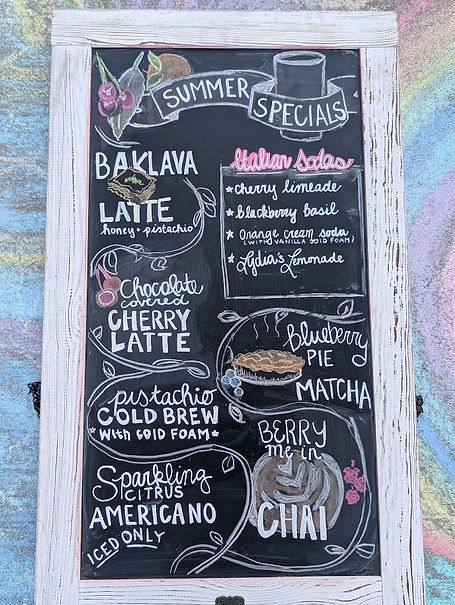 SUMMER SPECIALS
BAKLAVA
LATTE
honey + pistachio
Chocolate
covered
CHERRY
LATTE
pistachio
COLD BREW
* with COLD FOAM *
Sparkling
CITRUS
AMERICANO
ICED ONLY
Italian Sodas
* cherry limeade
* blackberry basil
* orange cream soda
(WITH VANILLA COLD FOAM)
* Lydia's Lemonade
Blueberry
PIE
MATCHA
BERRY
me in
CHAI